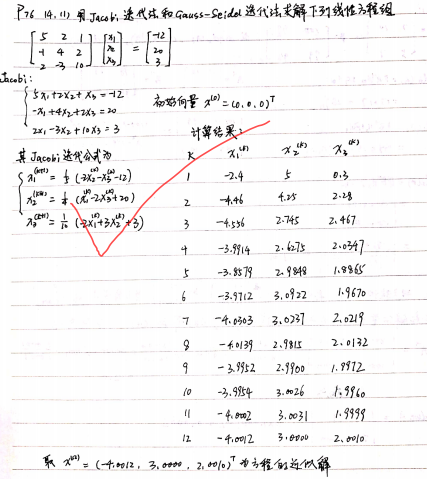 P76 14.(1) 用 Jacobi 迭代法和 Gauss-Seidel 迭代法求解下列线性方程组
[5 2 1; -1 4 2; 2 -3 10] [x₁; x₂; x₃] = [-12; 20; 3]
Jacobi:
5x₁+2x₂+x₃=-12
-x₁+4x₂+2x₃=20
2x₁-3x₂+10x₃=3
初始向量 x⁽⁰⁾=(0,0,0)ᵀ
其 Jacobi 迭代公式为
x₁⁽ᵏ⁺¹⁾ = 1/5 (-2x₂⁽ᵏ⁾-x₃⁽ᵏ⁾-12)
x₂⁽ᵏ⁺¹⁾ = 1/4 (x₁⁽ᵏ⁾-2x₃⁽ᵏ⁾+20)
x₃⁽ᵏ⁺¹⁾ = 1/10 (-2x₁⁽ᵏ⁾+3x₂⁽ᵏ⁾+3)
计算结果:
K x₁⁽ᵏ⁾ x₂⁽ᵏ⁾ x₃⁽ᵏ⁾
1 -2.4 5 0.3
2 -4.46 4.25 2.28
3 -4.556 2.745 2.467
4 -3.9914 2.6275 2.0347
5 -3.8579 2.9848 1.8865
6 -3.9712 3.0922 1.9670
7 -4.0303 3.0237 2.0219
8 -4.0139 2.9815 2.0132
9 -3.9952 2.9900 1.9972
10 -3.9954 3.0026 1.9960
11 -4.0002 3.0031 1.9999
12 -4.0012 3.0000 2.0010
取 x⁽¹²⁾=(-4.0012, 3.0000, 2.0010)ᵀ 为方程的近似解